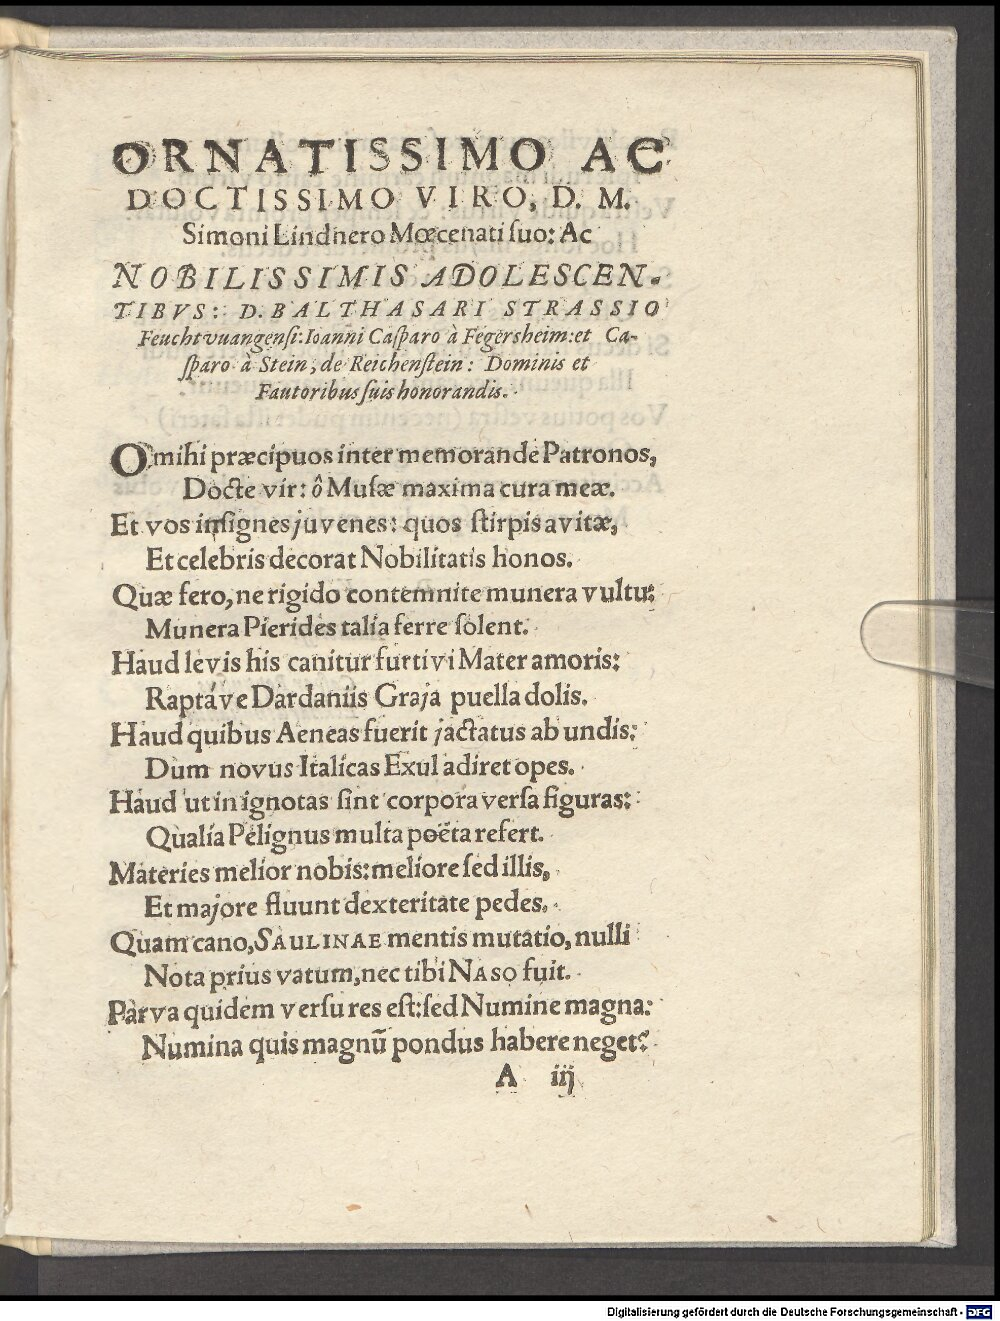 ORNATISSIMO AC
DOCTISSIMO VIRO, D. M.
Simoni Lindnero Mœcenati ſuo: Ac
NOBILISSIMIS ADOLESCEN-
TIBVS: D. BALTHASARI STRASSIO
Feuchtvuangenſi: Ioanni Caſparo à Fegersheim: et Ca-
ſparo à Stein, de Reichenſtein: Dominis et
Fautoribus ſuis honorandis.
O mihi præcipuos inter memorande Patronos,
Docte vir: ô Muſæ maxima cura meæ.
Et vos inſignes juvenes: quos ſtirpis avitæ,
Et celebris decorat Nobilitatis honos.
Quæ fero, ne rigido contemnite munera vultu:
Munera Pierides talia ferre ſolent.
Haud levis his canitur furtivi Mater amoris:
Raptave Dardaniis Graja puella dolis.
Haud quibus Aeneas fuerit jactatus ab undis:
Dum novus Italicas Exul adiret opes.
Haud ut in ignotas ſint corpora verſa figuras:
Qualia Pelignus multa poëta refert.
Materies melior nobis: meliore ſed illis,
Et majore fluunt dexteritate pedes.
Quam cano, SAULINAE mentis mutatio, nulli
Nota prius vatum, nec tibi NASO fuit.
Parva quidem verſu res eſt: ſed Numine magna:
Numina quis magnū pondus habere neget?
A iij
Digitalisierung gefördert durch die Deutsche Forschungsgemeinschaft - DFG